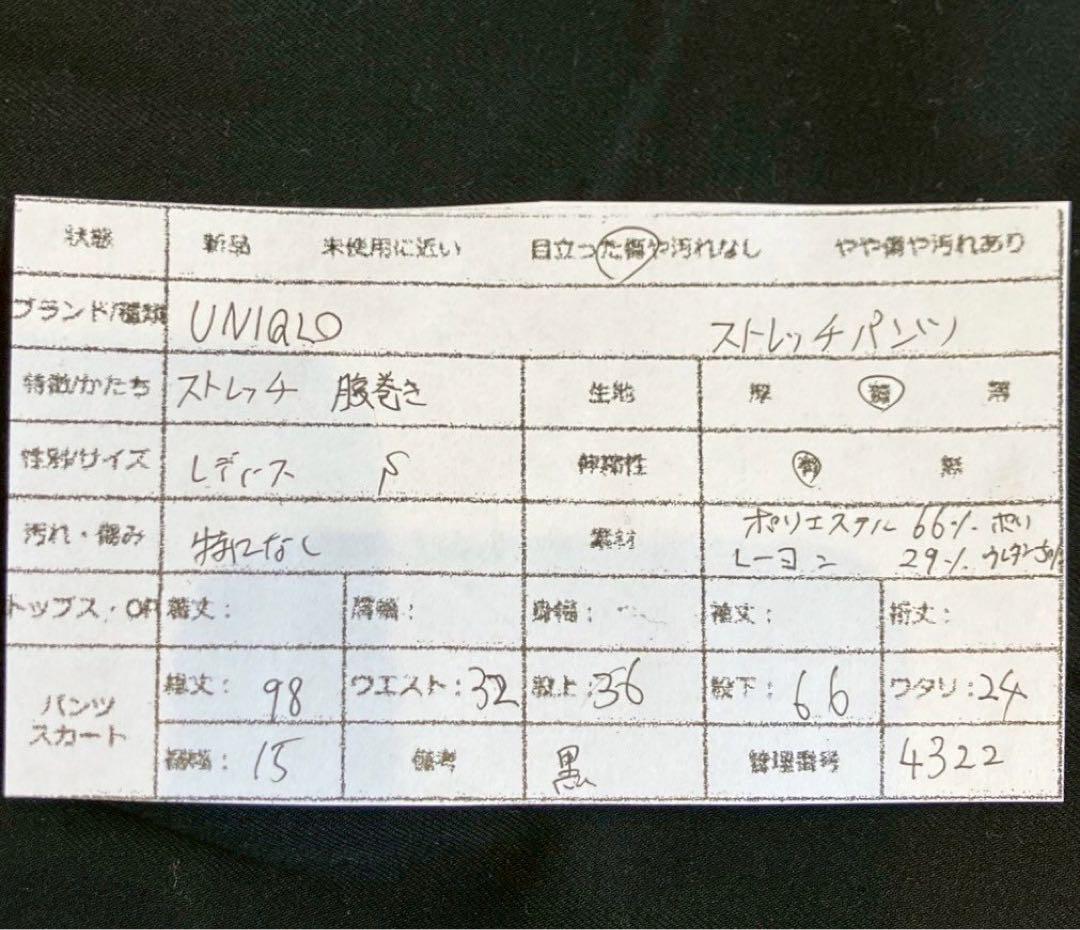 状態 新品 未使用に近い 目立った傷や汚れなし やや傷や汚れあり
ブランド/種類 UNIQLO ストレッチパンツ
特徴/かたち ストレッチ 腹巻き 生地 厚 普 薄
性別/サイズ レディース S 伸縮性 有 無
汚れ・傷み 特になし 素材 ポリエステル 66% ポリ
レーヨン 29% ウレタン
トップス・OP 着丈: 肩幅: 身幅: 袖丈: 裄丈:
パンツ スカート 総丈: 98 ウエスト: 32 股上: 36 股下: 66 ワタリ: 24
裾幅: 15 備考 黒 管理番号 4322